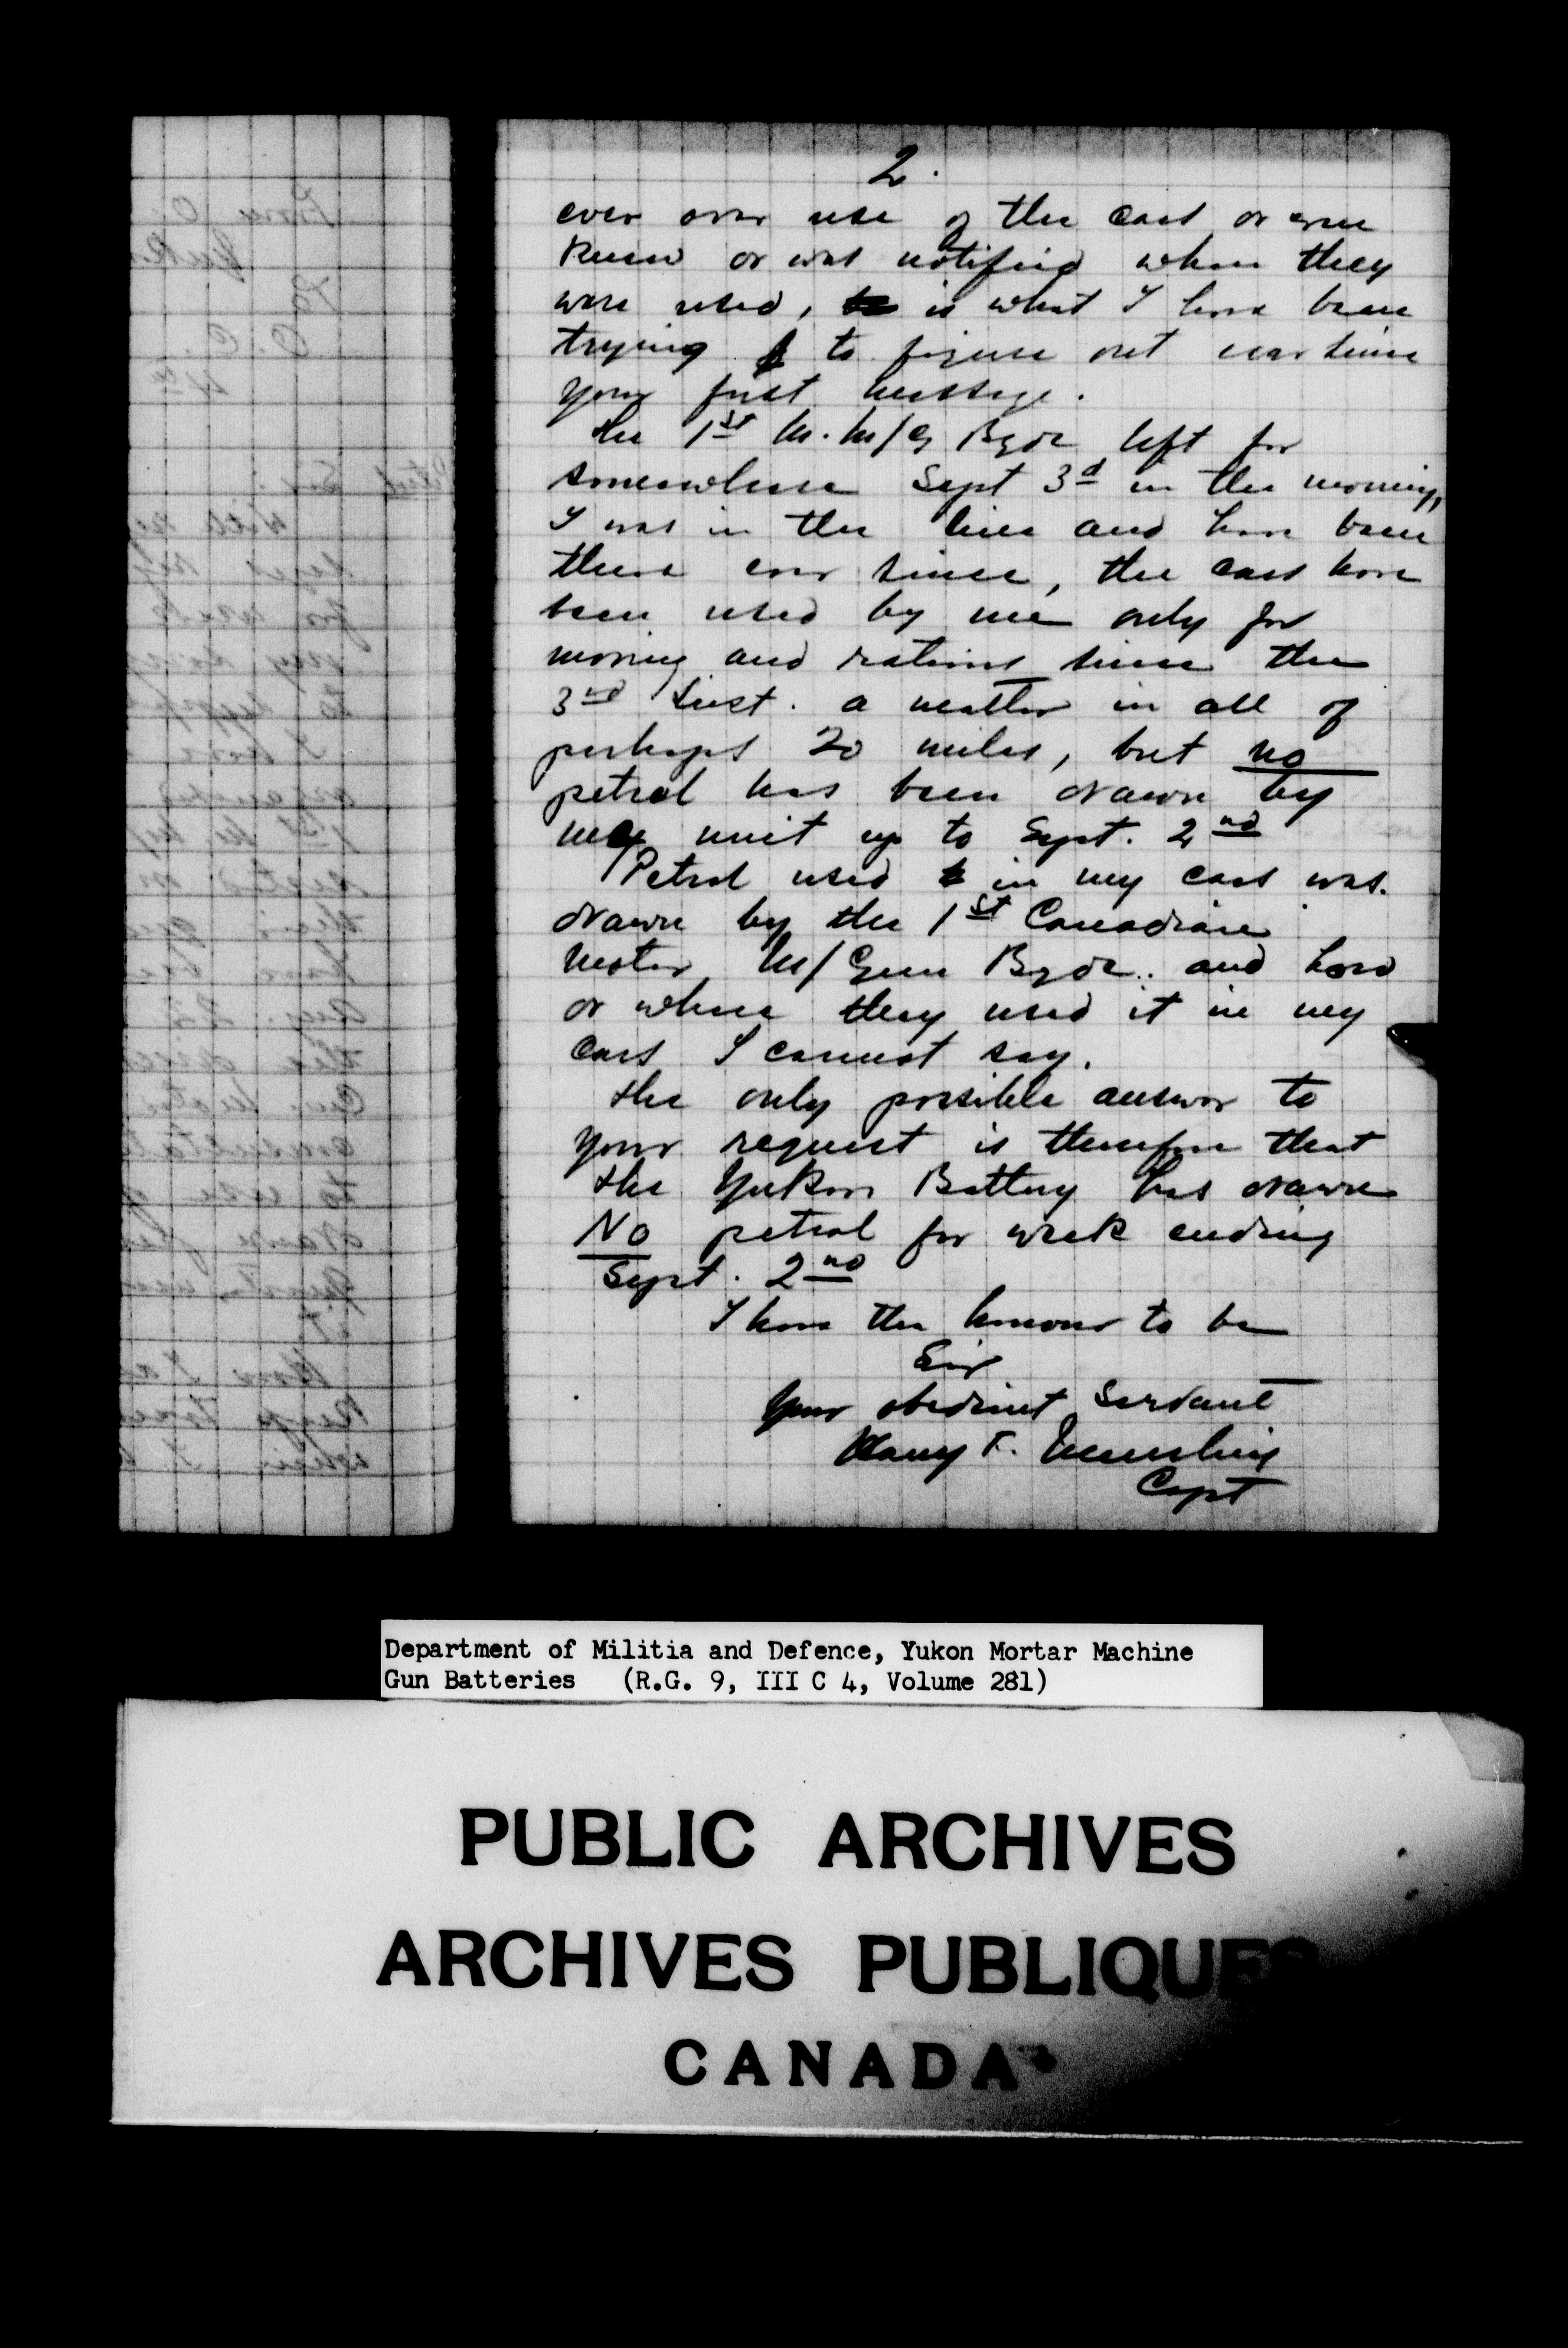 2.
ever over use of the cars or even
knew or was notified when they
were used, is what I have been
trying to figure out ever since
your first message.
the 1st M. M/G Bgde left for
somewhere Sept 3d in the morning,
I was in the line and have been
there ever since, the cars have
been used by me only for
moving and rations since the
3rd inst. a matter in all of
perhaps 20 miles, but no
petrol has been drawn by
my unit up to Sept. 2nd
Petrol used in my cars was
drawn by the 1st Canadian
Motor M/Gun Bgde. and how
or where they used it in my
cars I cannot say.
the only possible answer to
your request is therefore that
the Yukon Battery has drawn
No petrol for week ending
Sept. 2nd
I have the honour to be
Sir
Your obedient Servant
Harry F. Meurling
Capt
Department of Militia and Defence, Yukon Mortar Machine
Gun Batteries (R.G. 9, III C 4, Volume 281)
PUBLIC ARCHIVES
ARCHIVES PUBLIQUES
CANADA